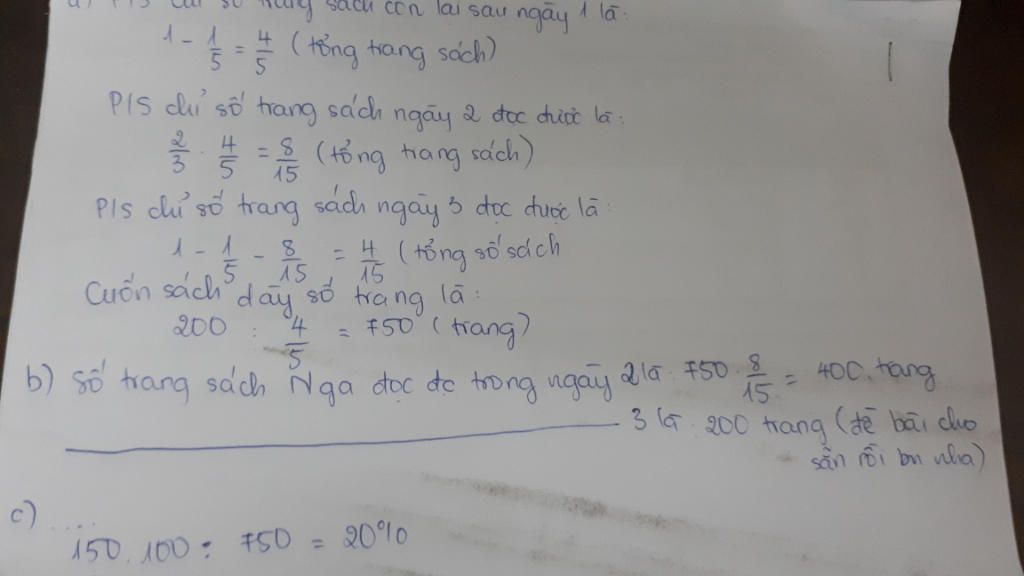 a) P/S chỉ số trang sách còn lại sau ngày 1 là:
1 - 1/5 = 4/5 (tổng trang sách)
P/S chỉ số trang sách ngày 2 đọc được là:
2/3 . 4/5 = 8/15 (tổng trang sách)
P/S chỉ số trang sách ngày 3 đọc được là:
1 - 1/5 - 8/15 = 4/15 (tổng số sách
Cuốn sách dày số trang là:
200 : 4/5 = 750 (trang)
b) Số trang sách Nga đọc đc trong ngày 2 là 750 . 8/15 = 400 . tang
3 là 200 trang (đề bài cho
sẵn rồi bn nha)
c) ....
150.100 : 750 = 20%